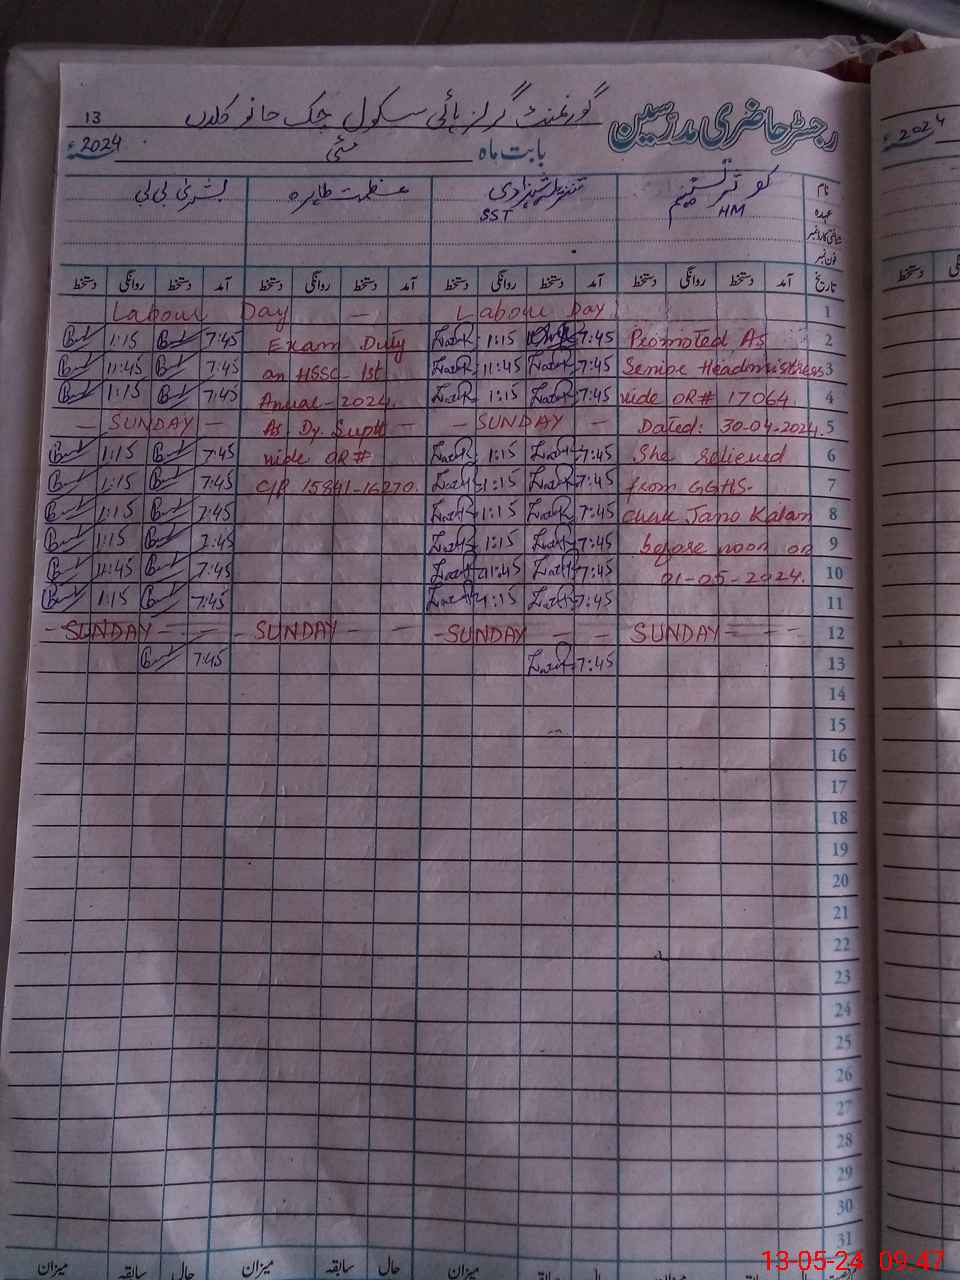 رجسٹر حاضری مدرسین گورنمنٹ گرلز ہائی سکول چک جانو کلاں 13
بابت ماہ مئی 2024ء
نام کوثر تسنیم شہزادی عظمت طاہرہ بشریٰ بی بی
عہدہ HM SST
شناختی کارڈ نمبر
فون نمبر
تاریخ آمد دستخط روانگی دستخط آمد دستخط روانگی دستخط آمد دستخط روانگی دستخط آمد دستخط روانگی دستخط
Labour Day — Labour Day 1
1:15 7:45 Exam Duty 1:15 7:45 Promoted As 2
11:45 7:45 on HSSC-1st 11:45 7:45 Senior Headmistress 3
1:15 7:45 Annual-2024. 1:15 7:45 vide OR# 17064. 4
— SUNDAY — As Dy. Supdt — SUNDAY — Dated: 30-04-2024. 5
1:15 7:45 vide OR# 1:15 7:45 She relieved 6
1:15 7:45 C/R 15841-16270. 1:15 7:45 from GGHS. 7
1:15 7:45 1:15 7:45 Chak Jano Kalan 8
1:15 7:45 1:15 7:45 before noon on 9
11:45 7:45 11:45 7:45 01-05-2024. 10
1:15 7:45 1:15 7:45 11
- SUNDAY - - SUNDAY - - - SUNDAY - - SUNDAY - - 12
7:45 7:45 13
14
15
16
17
18
19
20
21
22
23
24
25
26
27
28
29
30
31
حال سابقہ میزان حال سابقہ میزان میزان
2024ء
دستخط
13-05-24 09:47